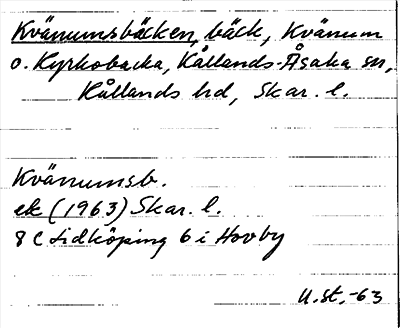 Kvänumsbäcken, bäck, Kvänum
o. Kyrkobacka, Kållands-Åsaka sn,
Kållands hd, Skar. l.
Kvänumsb.
ek (1963) Skar. l.
8 C Lidköping 6 i Hovby
U.St.-63